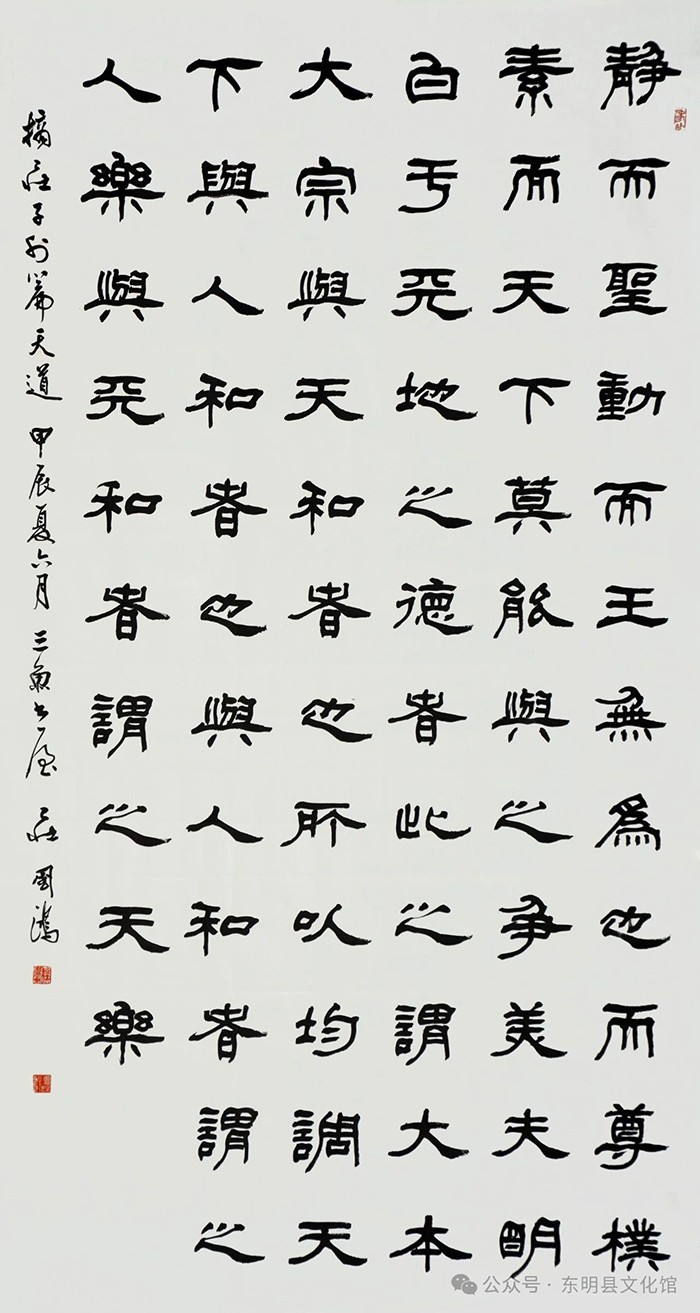 静而聖動而王無爲也而尊樸
素而天下莫能與之争美夫明
白于天地之德者此之謂大本
大宗與天和者也所以均調天
下與人和者也與人和者謂之
人樂與天和者謂之天樂
摘莊子外篇天道 甲辰夏六月 三魚书屋 莊國鴻
公众号·东明县文化馆